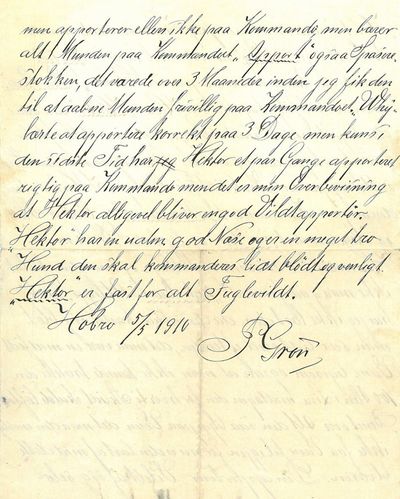 men apporterer ellers ikke paa Kommando, men bærer
alt i Munden paa Kommandoet „Apport" ogsaa Spasere-
stokken, det varede over 3 Maaneder inden jeg fik den
til at aabne Munden frivillig paa Kommandoet.
lærte at apportere korrekt paa 3 Dage men kun i
den sidste Tid har jeg Hektor et par Gange apporteret
rigtig paa Kommando men det er min Overbevisning
at Hektor alligevel bliver en god Vildtapportør.
"Hektor" har en ualm. god Næse og er en meget tro
Hund den skal kommanderes lidt blødt og venligt.
"Hektor" er fast for alt Fuglevildt.
Hobro 5/5 1910
Grøn